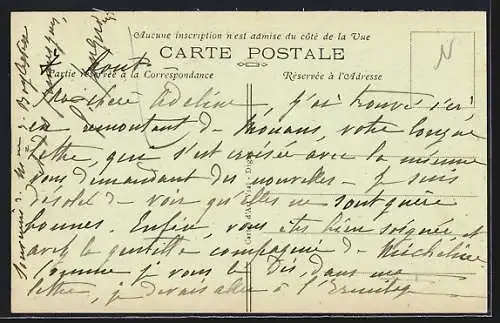 Aucune inscription n'est admise du côté de la Vue
CARTE POSTALE
Partie réservée à la Correspondance
Réservée à l'Adresse
N
Ma chère Adeline, j'ai trouvé ici
en remontant de Mouans, votre longue
lettre, qui s'est croisée avec la mienne
vous demandant des nouvelles. Je suis
désolée de voir qu'elles ne sont guère
bonnes. Enfin, vous êtes bien soignée et
avez la gentille compagnie de Micheline
Comme je vous le dis, dans ma
lettre, je devais aller à l'